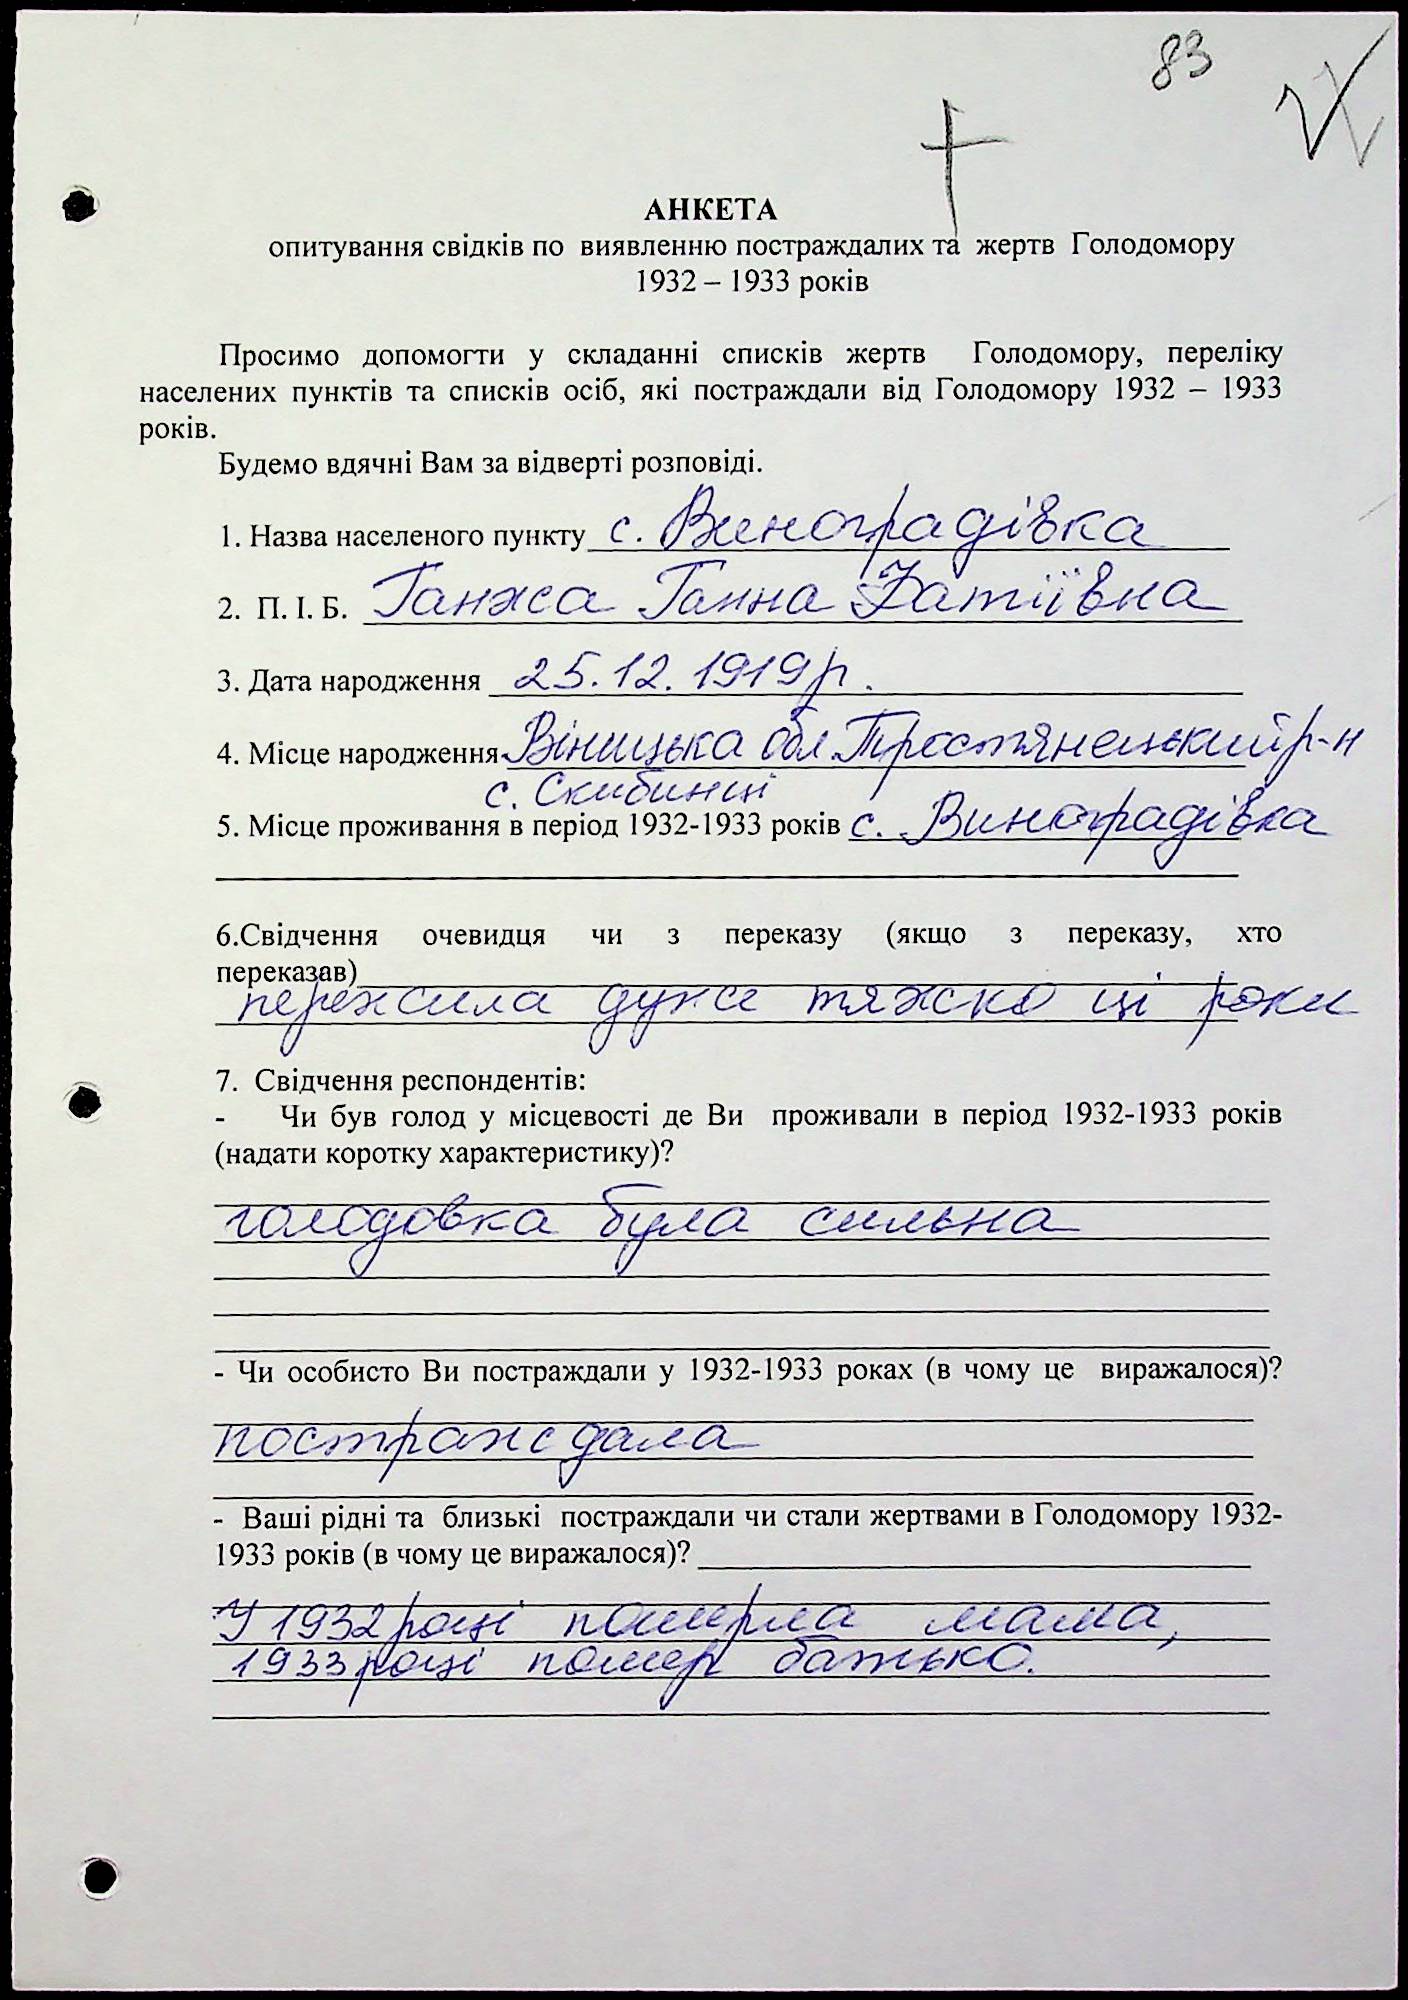 83
АНКЕТА
опитування свідків по виявленню постраждалих та жертв Голодомору
1932 – 1933 років
Просимо допомогти у складанні списків жертв Голодомору, переліку
населених пунктів та списків осіб, які постраждали від Голодомору 1932 – 1933
років.
Будемо вдячні Вам за відверті розповіді.
1. Назва населеного пункту с. Виноградівка
2. П. І. Б. Ганжа Ганна
3. Дата народження 25.12.1919р.
4. Місце народження Віницька обл. Тростянецький р-н
с. Скибинці
5. Місце проживання в період 1932-1933 років с. Виноградівка
6.Свідчення очевидця чи з переказу (якщо з переказу, хто
переказав)
пережила дуже тяжко ці роки
7. Свідчення респондентів:
- Чи був голод у місцевості де Ви проживали в період 1932-1933 років
(надати коротку характеристику)?
голодовка була сильна
- Чи особисто Ви постраждали у 1932-1933 роках (в чому це виражалося)?
постраждала
- Ваші рідні та близькі постраждали чи стали жертвами в Голодомору 1932-
1933 років (в чому це виражалося)?
У 1932 році померла мама,
1933 році помер батько.